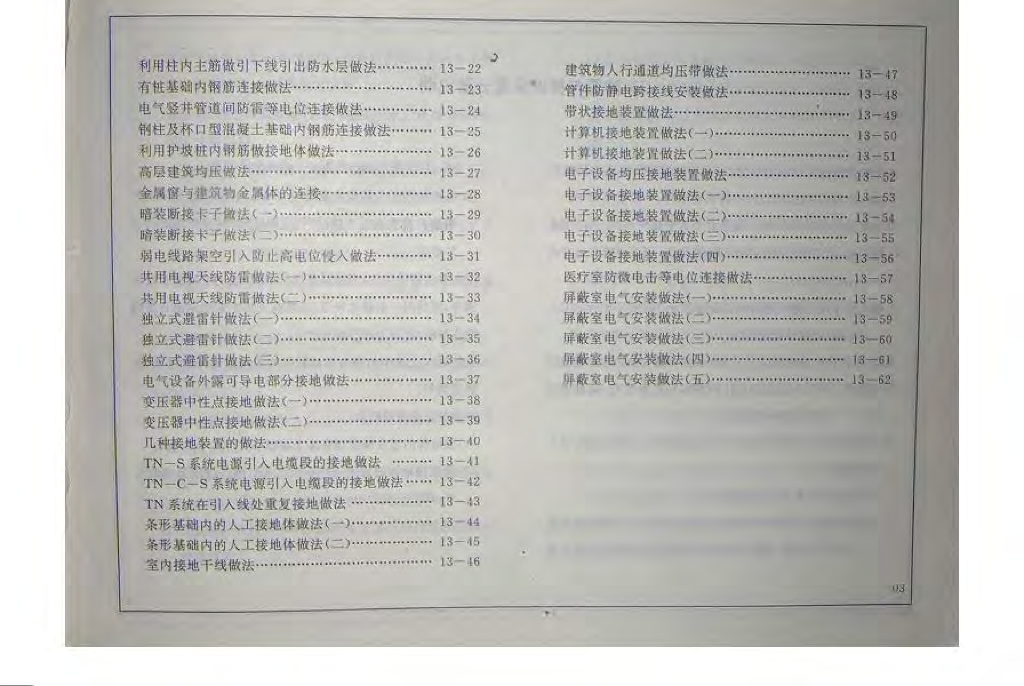 利用柱内主筋做引下线引出防水层做法………… 13－22
有桩基础内钢筋连接做法……………………… 13－23
电气竖井管道间防雷等电位连接做法………… 13－24
钢柱及杯口型混凝土基础内钢筋连接做法……… 13－25
利用护坡桩内钢筋做接地体做法……………… 13－26
高层建筑均压做法……………………………… 13－27
金属窗与建筑物金属体的连接………………… 13－28
暗装断接卡子做法(一)………………………… 13－29
暗装断接卡子做法(二)………………………… 13－30
弱电线路架空引入防止高电位侵入做法……… 13－31
共用电视天线防雷做法(一)…………………… 13－32
共用电视天线防雷做法(二)…………………… 13－33
独立式避雷针做法(一)………………………… 13－34
独立式避雷针做法(二)………………………… 13－35
独立式避雷针做法(三)………………………… 13－36
电气设备外露可导电部分接地做法…………… 13－37
变压器中性点接地做法(一)…………………… 13－38
变压器中性点接地做法(二)…………………… 13－39
几种接地装置的做法…………………………… 13－40
TN－S 系统电源引入电缆段的接地做法 ……… 13－41
TN－C－S 系统电源引入电缆段的接地做法…… 13－42
TN 系统在引入线处重复接地做法 …………… 13－43
条形基础内的人工接地体做法(一)…………… 13－44
条形基础内的人工接地体做法(二)…………… 13－45
室内接地干线做法……………………………… 13－46
建筑物人行通道均压带做法…………………… 13－47
管件防静电跨接线安装做法…………………… 13－48
带状接地装置做法……………………………… 13－49
计算机接地装置做法(一)……………………… 13－50
计算机接地装置做法(二)……………………… 13－51
电子设备均压接地装置做法…………………… 13－52
电子设备接地装置做法(一)…………………… 13－53
电子设备接地装置做法(二)…………………… 13－54
电子设备接地装置做法(三)…………………… 13－55
电子设备接地装置做法(四)…………………… 13－56
医疗室防微电击等电位连接做法……………… 13－57
屏蔽室电气安装做法(一)……………………… 13－58
屏蔽室电气安装做法(二)……………………… 13－59
屏蔽室电气安装做法(三)……………………… 13－60
屏蔽室电气安装做法(四)……………………… 13－61
屏蔽室电气安装做法(五)……………………… 13－62
03